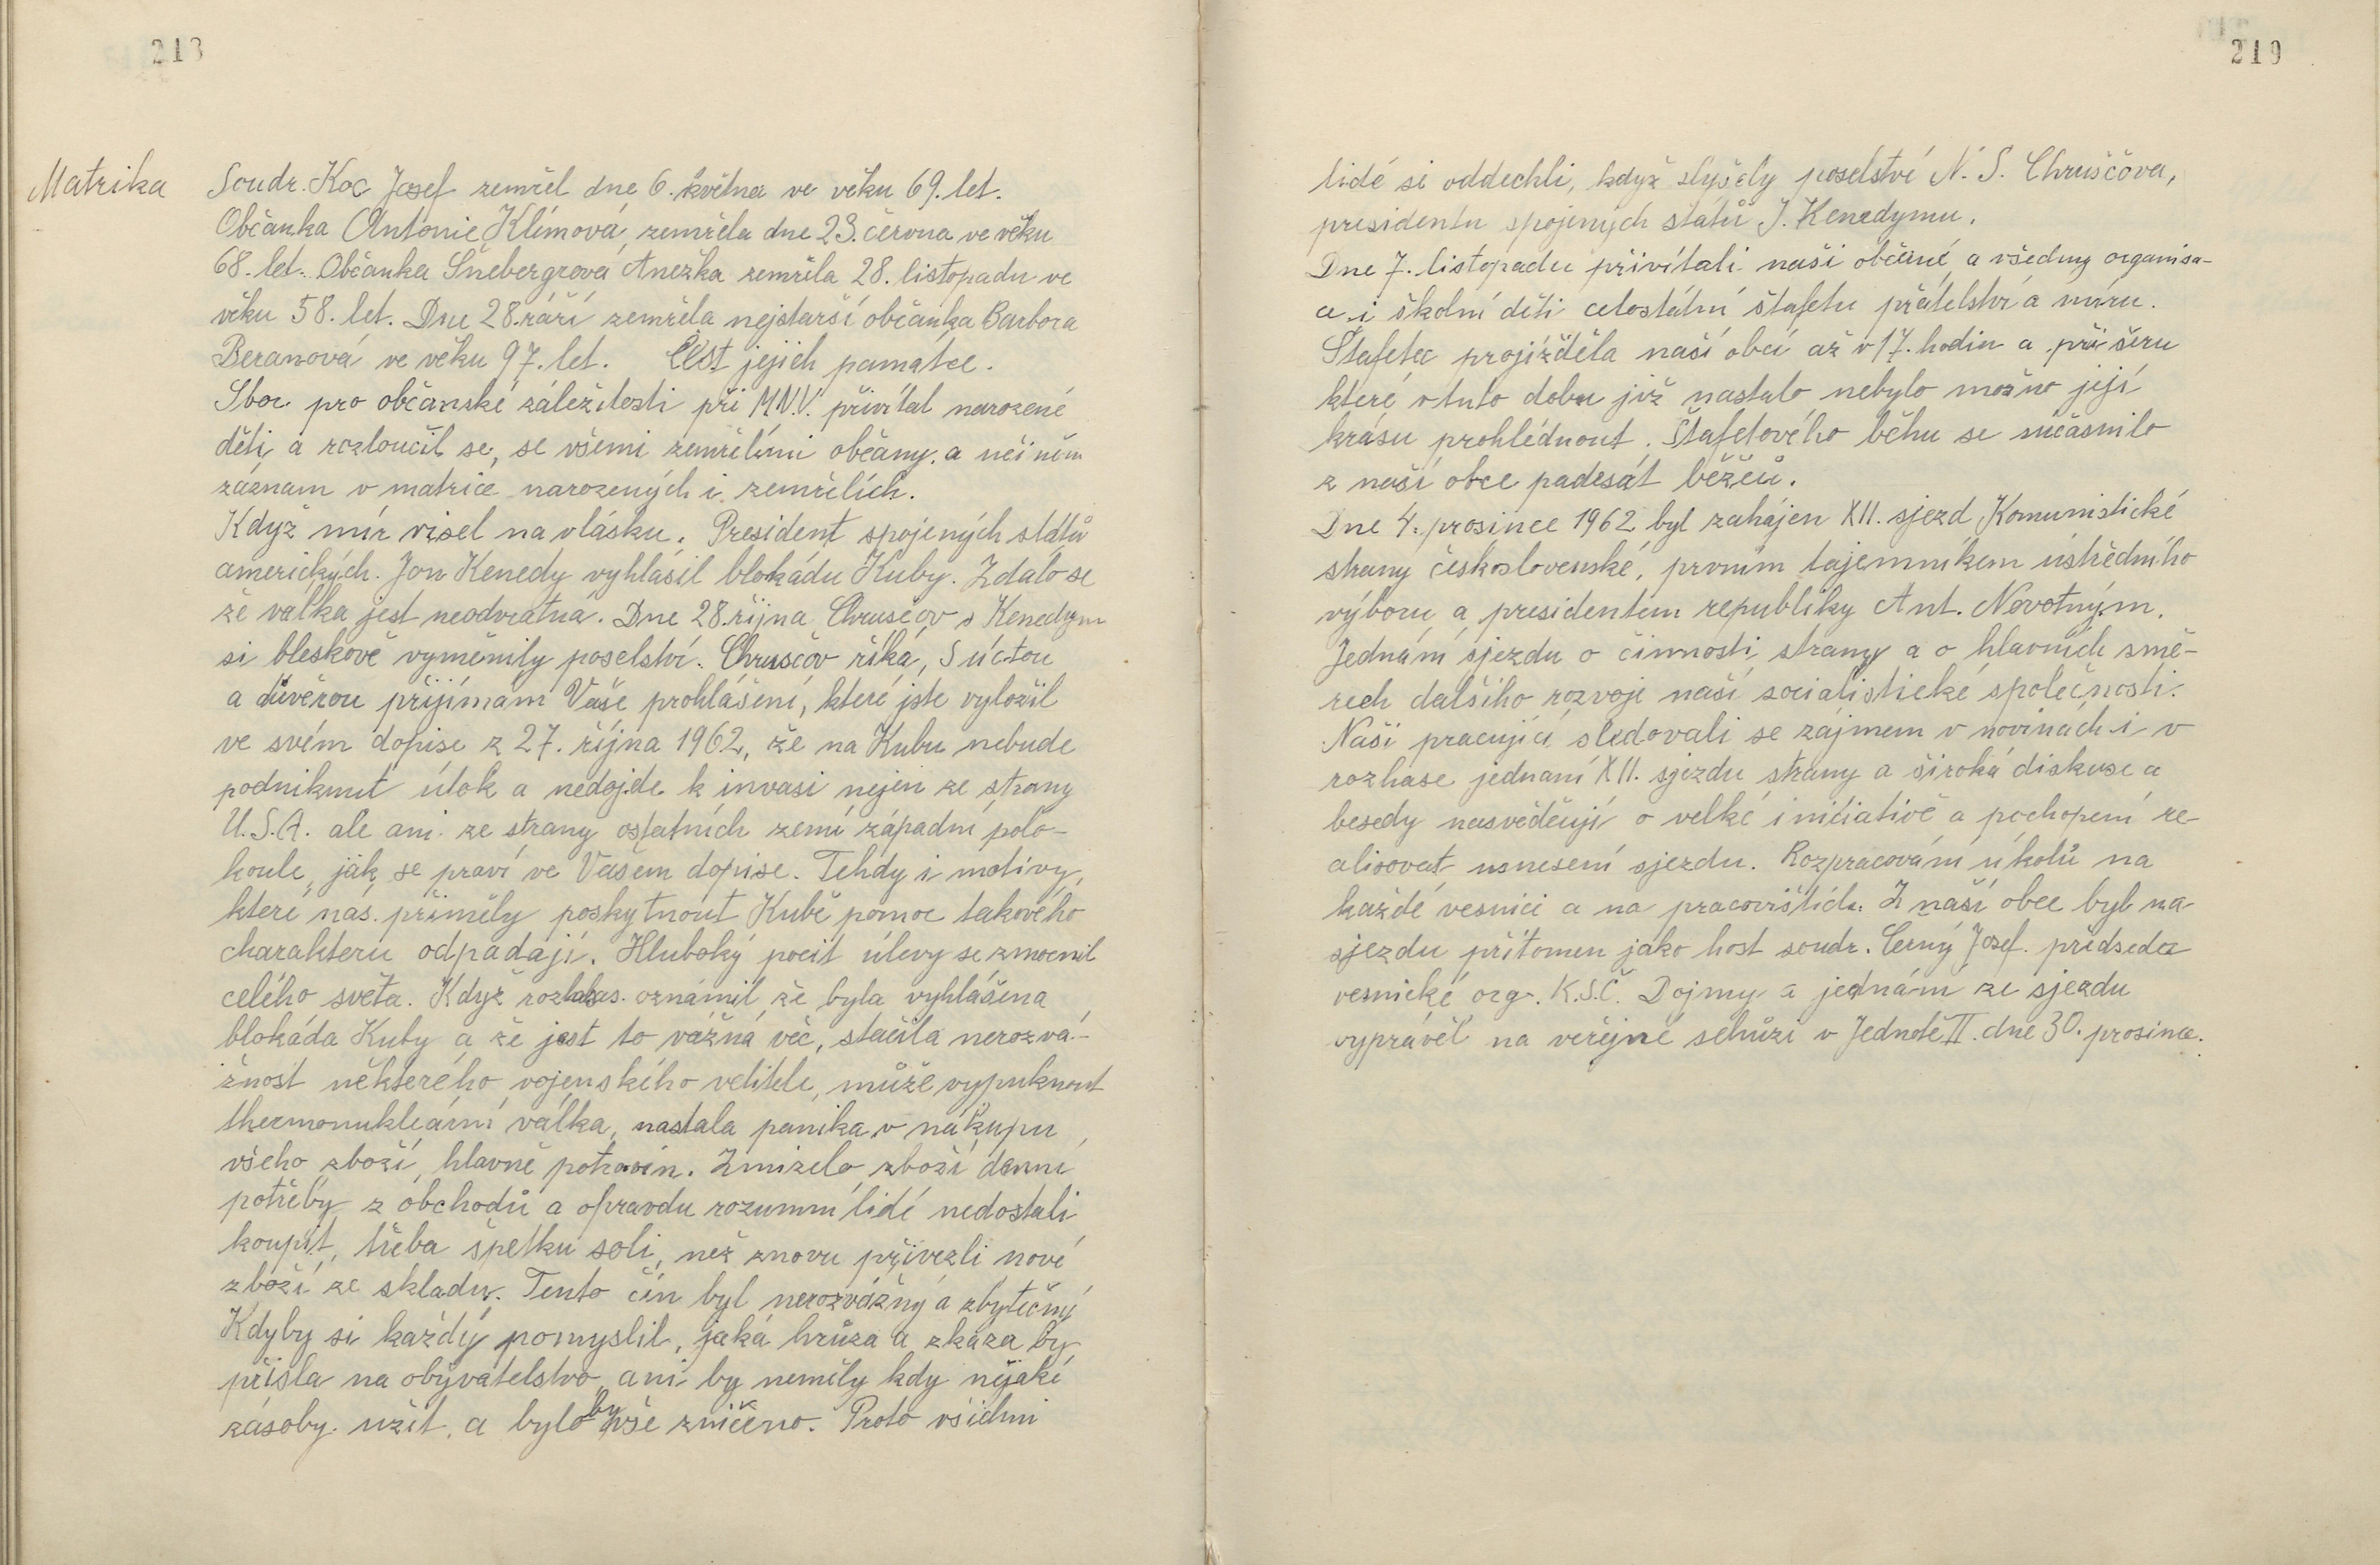 218
Matrika
Soudr. Koc Josef zemřel dne 6. května ve věku 69. let.
Občanka Antonie Klímová, zemřela dne 23. června ve věku
68. let. Občanka Šnebergrová Anežka zemřela 28. listopadu ve
věku 58. let. Dne 28. září zemřela nejstarší občanka Barbora
Beranová ve věku 97. let. Čest jejich památce.
Sbor pro občanské záležitosti při M.N.V. přivítal narozené
děti, a rozloučil se, se všemi zemřelými občany. a učiněn
záznam v matrice narozených i zemřelích.
Když mír visel na vlásku. President spojených států
amerických. Jon Kenedy vyhlásil blokádu Kuby. Zdálo se
že válka jest neodvratná. Dne 28. října Chruščov s Kenedym
si bleskově vyměnily poselství. Chruščov říká, S úctou
a důvěrou přijímám Vaše prohlášení, které jste vyložil
ve svém dopise z 27. října 1962, že na Kubu nebude
podniknut útok a nedojde k invasi nejen ze strany
U.S.A. ale ani ze strany ostatních zemí západní polo-
koule, jak se praví ve Vašem dopise. Tehdy i motivy,
které nás přiměly poskytnout Kubě pomoc takového
charakteru odpadají. Hluboký pocit úlevy se zmocnil
celého světa. Když rozhlas. oznámil že byla vyhlášena
blokáda Kuby a že jest to vážná věc, stačila nerozvá-
žnost některého vojenského velitele, může vypuknout
thermonukleární válka, nastala panika v nákupu
všeho zboží, hlavně potravin. Zmizelo zboží denní
potřeby z obchodů a opravdu rozumní lidé nedostali
koupit, třeba špetku soli, než znovu přivezli nové
zboží ze skladu. Tento čin byl nerozvážný a zbytečný
Kdyby si každý pomyslil, jaká hrůza a zkáza by
přišla na obyvatelstvo, ani by neměly kdy nějaké
zásoby užít, a bylo by vše zničeno. Proto všichni
219
lidé si oddechli, když slyšely poselství N. S. Chruščova,
presidentu spojených států J. Kenedymu.
Dne 7. listopadu přivítali naši občané, a všedny organisa-
ce i školní děti celostátní štafetu přátelství a míru.
Štafeta projížděla naší obcí až v 17. hodin a při šeru
které v tuto dobu již nastalo nebylo možno její
krásu prohlédnout. Štafetového běhu se súčasnilo
z naší obce padesát běžců.
Dne 4. prosince 1962 byl zahájen XII. sjezd Komunistické
strany československé, prvním tajemníkem ústředního
výboru a presidentem republiky Ant. Novotným.
Jednání sjezdu o činnosti strany a o hlavních smě-
rech dalšího rozvoje naší socialistické společnosti.
Naši pracující sledovali se zájmem v novinách i v
rozhase jednaní XII. sjezdu strany a široká diskuse a
besedy nasvědčují o velké iniciativě a pochopení re-
alisovat usnesení sjezdu. Rozpracování úkolů na
každé vesnici a na pracovištích. Z naší obce byl na
sjezdu přítomen jako host soudr. Černý Josef. předseda
vesnické org. K.S.Č. Dojmy a jednání ze sjezdu
vyprávěl na veřejné schůzi v Jednotě II. dne 30. prosince.